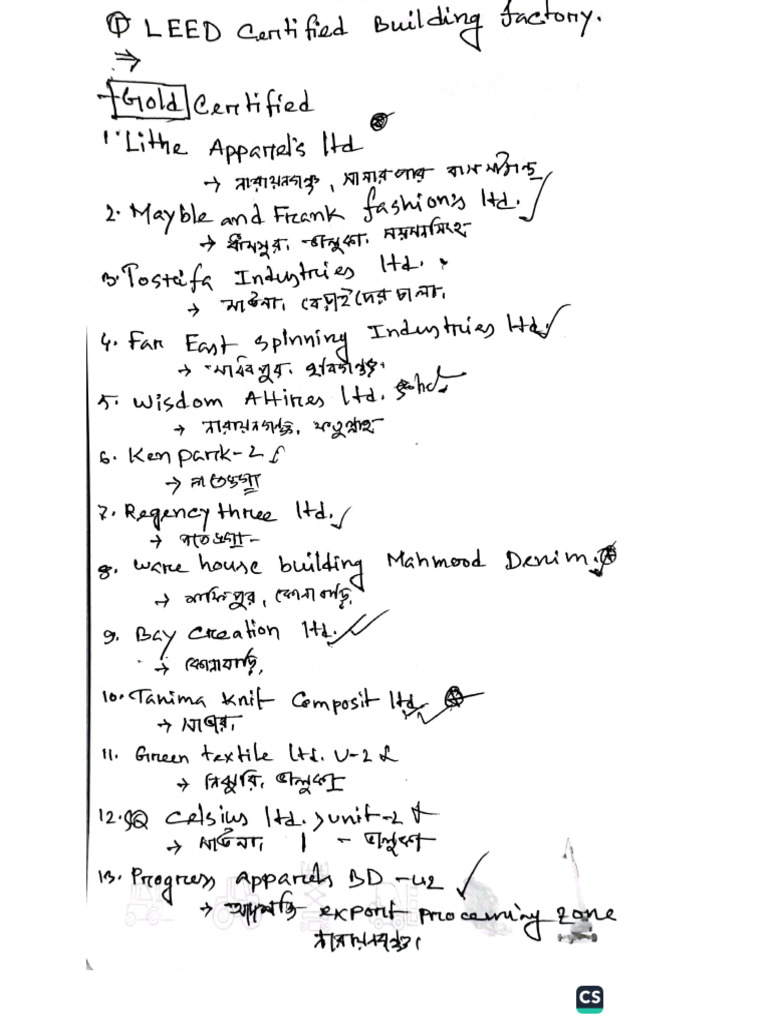 ① LEED Certified Building factory.
⇒
→ Gold Certified
1. Lithe Apparrel's ltd
→ নারায়নগঞ্জ,
2. Mayble and Frank fashion's ltd.
→ শ্রীপুর, ভালুকা, ময়মনসিংহ
3. Tostafa Industries ltd.
→ মাওনা,
4. Far East spinning Industries ltd.
→ হবিগঞ্জ,
5. Wisdom Attires ltd.
→ নারায়নগঞ্জ, ফতুল্লাহ
6. Ken Park-2
→ পতেঙ্গা
7. Regency three ltd.
→ পতেঙ্গা
8. ware house building Mahmood Denim.
→ গাজিপুর, কোনাবাড়ি,
9. Bay Creation ltd.
→ কোনাবাড়ি,
10. Tanima Knit Composit ltd.
→ সাভার,
11. Green textile ltd. U-2
→ ভালুকা
12. SQ Celsius ltd. unit-2
→ মাওনা, । - ভালুকা
13. Progress Apparels BD -U2
→ আদমজি export processing zone
নারায়নগঞ্জ।
CS